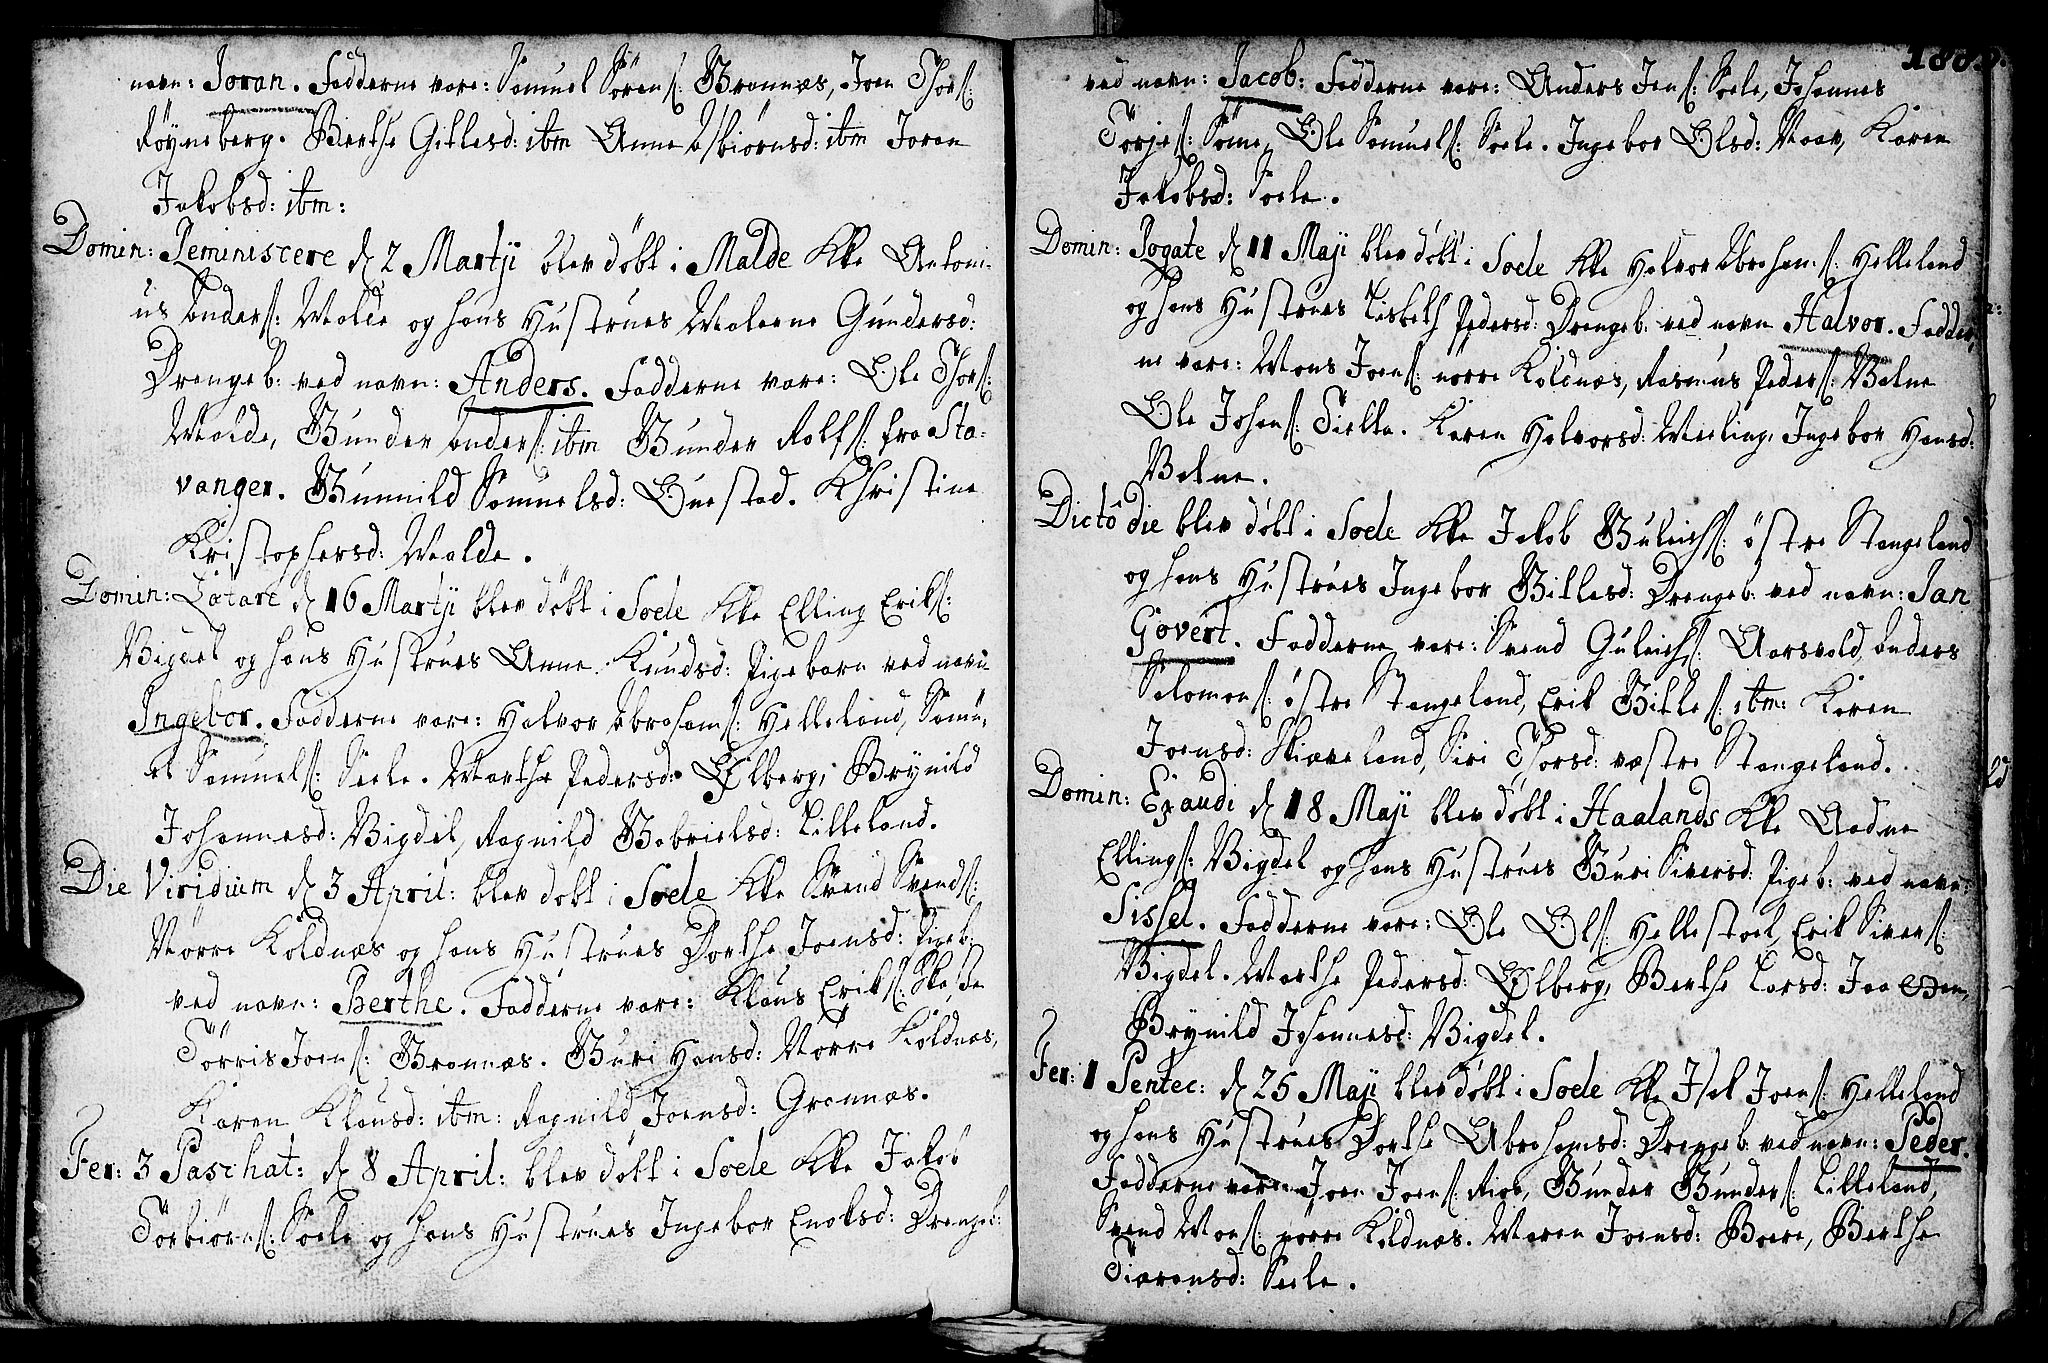 navn: Joran. Fadderne vare: Samuel Sörens: Grannæs, Joen Thors:
Röyneberg. Berthe Gitlesd: ibm Anne Asbiörnsd: ibm Joren
Jakobsd: ibm:
Domin: Reminiscere d 2 Martji blev döbt i Malde Kke Antoni-
us Anders: Malde og hans Hustrues Malene Gundersd:
Drengeb: ved navn: Anders. Fadderne vare: Ole Thors:
Malde, Gunder Anders: ibm Gunder Rolfs: fra Sta-
vanger. Gunnild Samuelsd: Questad. Khristine
Kristophersd: Malde.
Domin: Lætare d 16 Martji blev döbt i Soele Kke Elling Eriks:
Vigdel og hans Hustrues Anne Knudsd: Pigebarn ved navn
Ingebor. Fadderne vare: Halvor Abrahams: Helleland, Samu-
el Samuels: Soele. Marthe Pedersd: Ølberg, Brynild
Johannesd: Vigdel, Ragnild Gabrielsd: Lilleland.
Die Viridium d 3 April: blev döbt i Soele Kke Svend Svends:
Nörre Koldnæs og hans Hustrues Dorthe Joensd: Pigeb:
ved navn: Berthe. Fadderne vare: Klaus Eriks:
Törris Joens: Grannæs. Guri Hansd: Nörre Koldnæs,
Karen Klausd: ibm: Ragnild Joensd: Grannæs.
Fer: 3 Paschat: d 8 April: blev döbt i Soele Kke Jakob
Torbiörns: Soele og hans Hustrues Ingebor Enoksd: Drengeb:
188
ved navn: Jacob: Fadderne vare: Anders Jens: Soele, Johannes
Torjes: Söme, Ole Samuels: Soele. Ingebor Olsd: Karen
Jakobsd: Soele.
Domin: Rogate d 11 Maji blev döbt i Soele Kke Halvor Abrahams: Helleland
og hans Hustrues Lisbeth Pedersd: Drengeb: ved navn Halvor. Fadder,
ne vare: Mons Joens: nörre Koldnæs, Rasmus Peders: Vatne
Ole Johans: Tielta. Karen Halvorsd: Meeling, Ingebor Hansd:
Vatne.
Dicto die blev döbt i Soele Kke Jakob Guleichs: östre Stangeland
og hans Hustrues Ingebor Gitlesd: Drengeb: ved navn: Jan
Govert. Fadderne vare: Svend Guleichs: Aarsvold, Anders
Salomons: östre Stangeland, Erik Gitles: ibm: Karen
Joensd: Skiæveland, Siri Thorsd: væstre Stangeland.
Domin: Exaudi d 18 Maji blev döbt i Haalands Kke Aadne
Ellings: Vigdel og hans Hustrues Guri Siversd: Pigeb: ved navn:
Sissel. Fadderne vare: Ole Ols: Hellestoel, Erik Sivers:
Vigdel. Marthe Pedersd: Ølberg, Berthe Larsd: Jaasund,
Brynild Johannesd: Vigdel.
Fer: 1 Pentec: d 25 Maji blev döbt i Soele Kke Isak Joens: Helleland
og hans Hustrues Dorthe Abrahamsd: Drengeb: ved navn: Peder.
Fadderne vare: Joen Joens: Riee, Gunder Gunders: Lilleland,
Svend Mons: nörre Koldnæs. Maren Joensd: Boere, Berthe
Tiæransd: Soele.